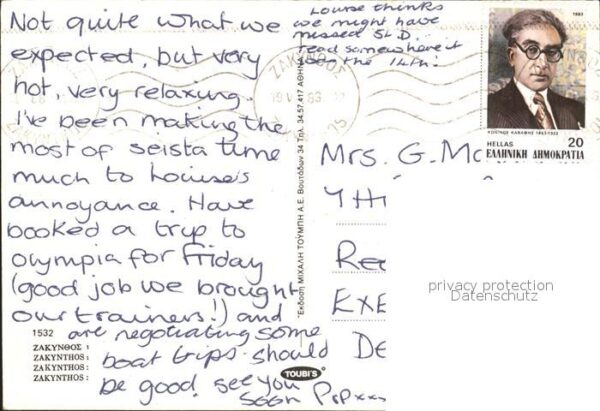 Not quite what we
expected, but very
hot, very relaxing.
I've been making the
most of seista time
much to Louise's
annoyance. Have
booked a trip to
Olympia for Friday
(good job we brought
our trainers!) and
are negotiating some
boat trips. should
be good. see you
soon PsPxxx
Louise thinks
we might have
missed SLD.
read somewhere it
was the 14th!
1532
ΖΑΚΥΝΘΟΣ :
ZAKYNTHOS :
ZAKYNTHOS :
ZAKYNTHOS :
TOUBI'S
Έκδοση ΜΙΧΑΛΗ ΤΟΥΜΠΗ Α.Ε. Βουτάδων 34 Τηλ. 34.57.417 ΑΘΗΝΑ
ΖΑΚΥΝΘΟΣ
1983
ΚΩΝ/ΝΟΣ ΚΑΒΑΦΗΣ 1863-1933
HELLAS 20
ΕΛΛΗΝΙΚΗ ΔΗΜΟΚΡΑΤΙΑ
Mrs. G. Mc
4 Hi
Re
EXE
DE
privacy protection
Datenschutz